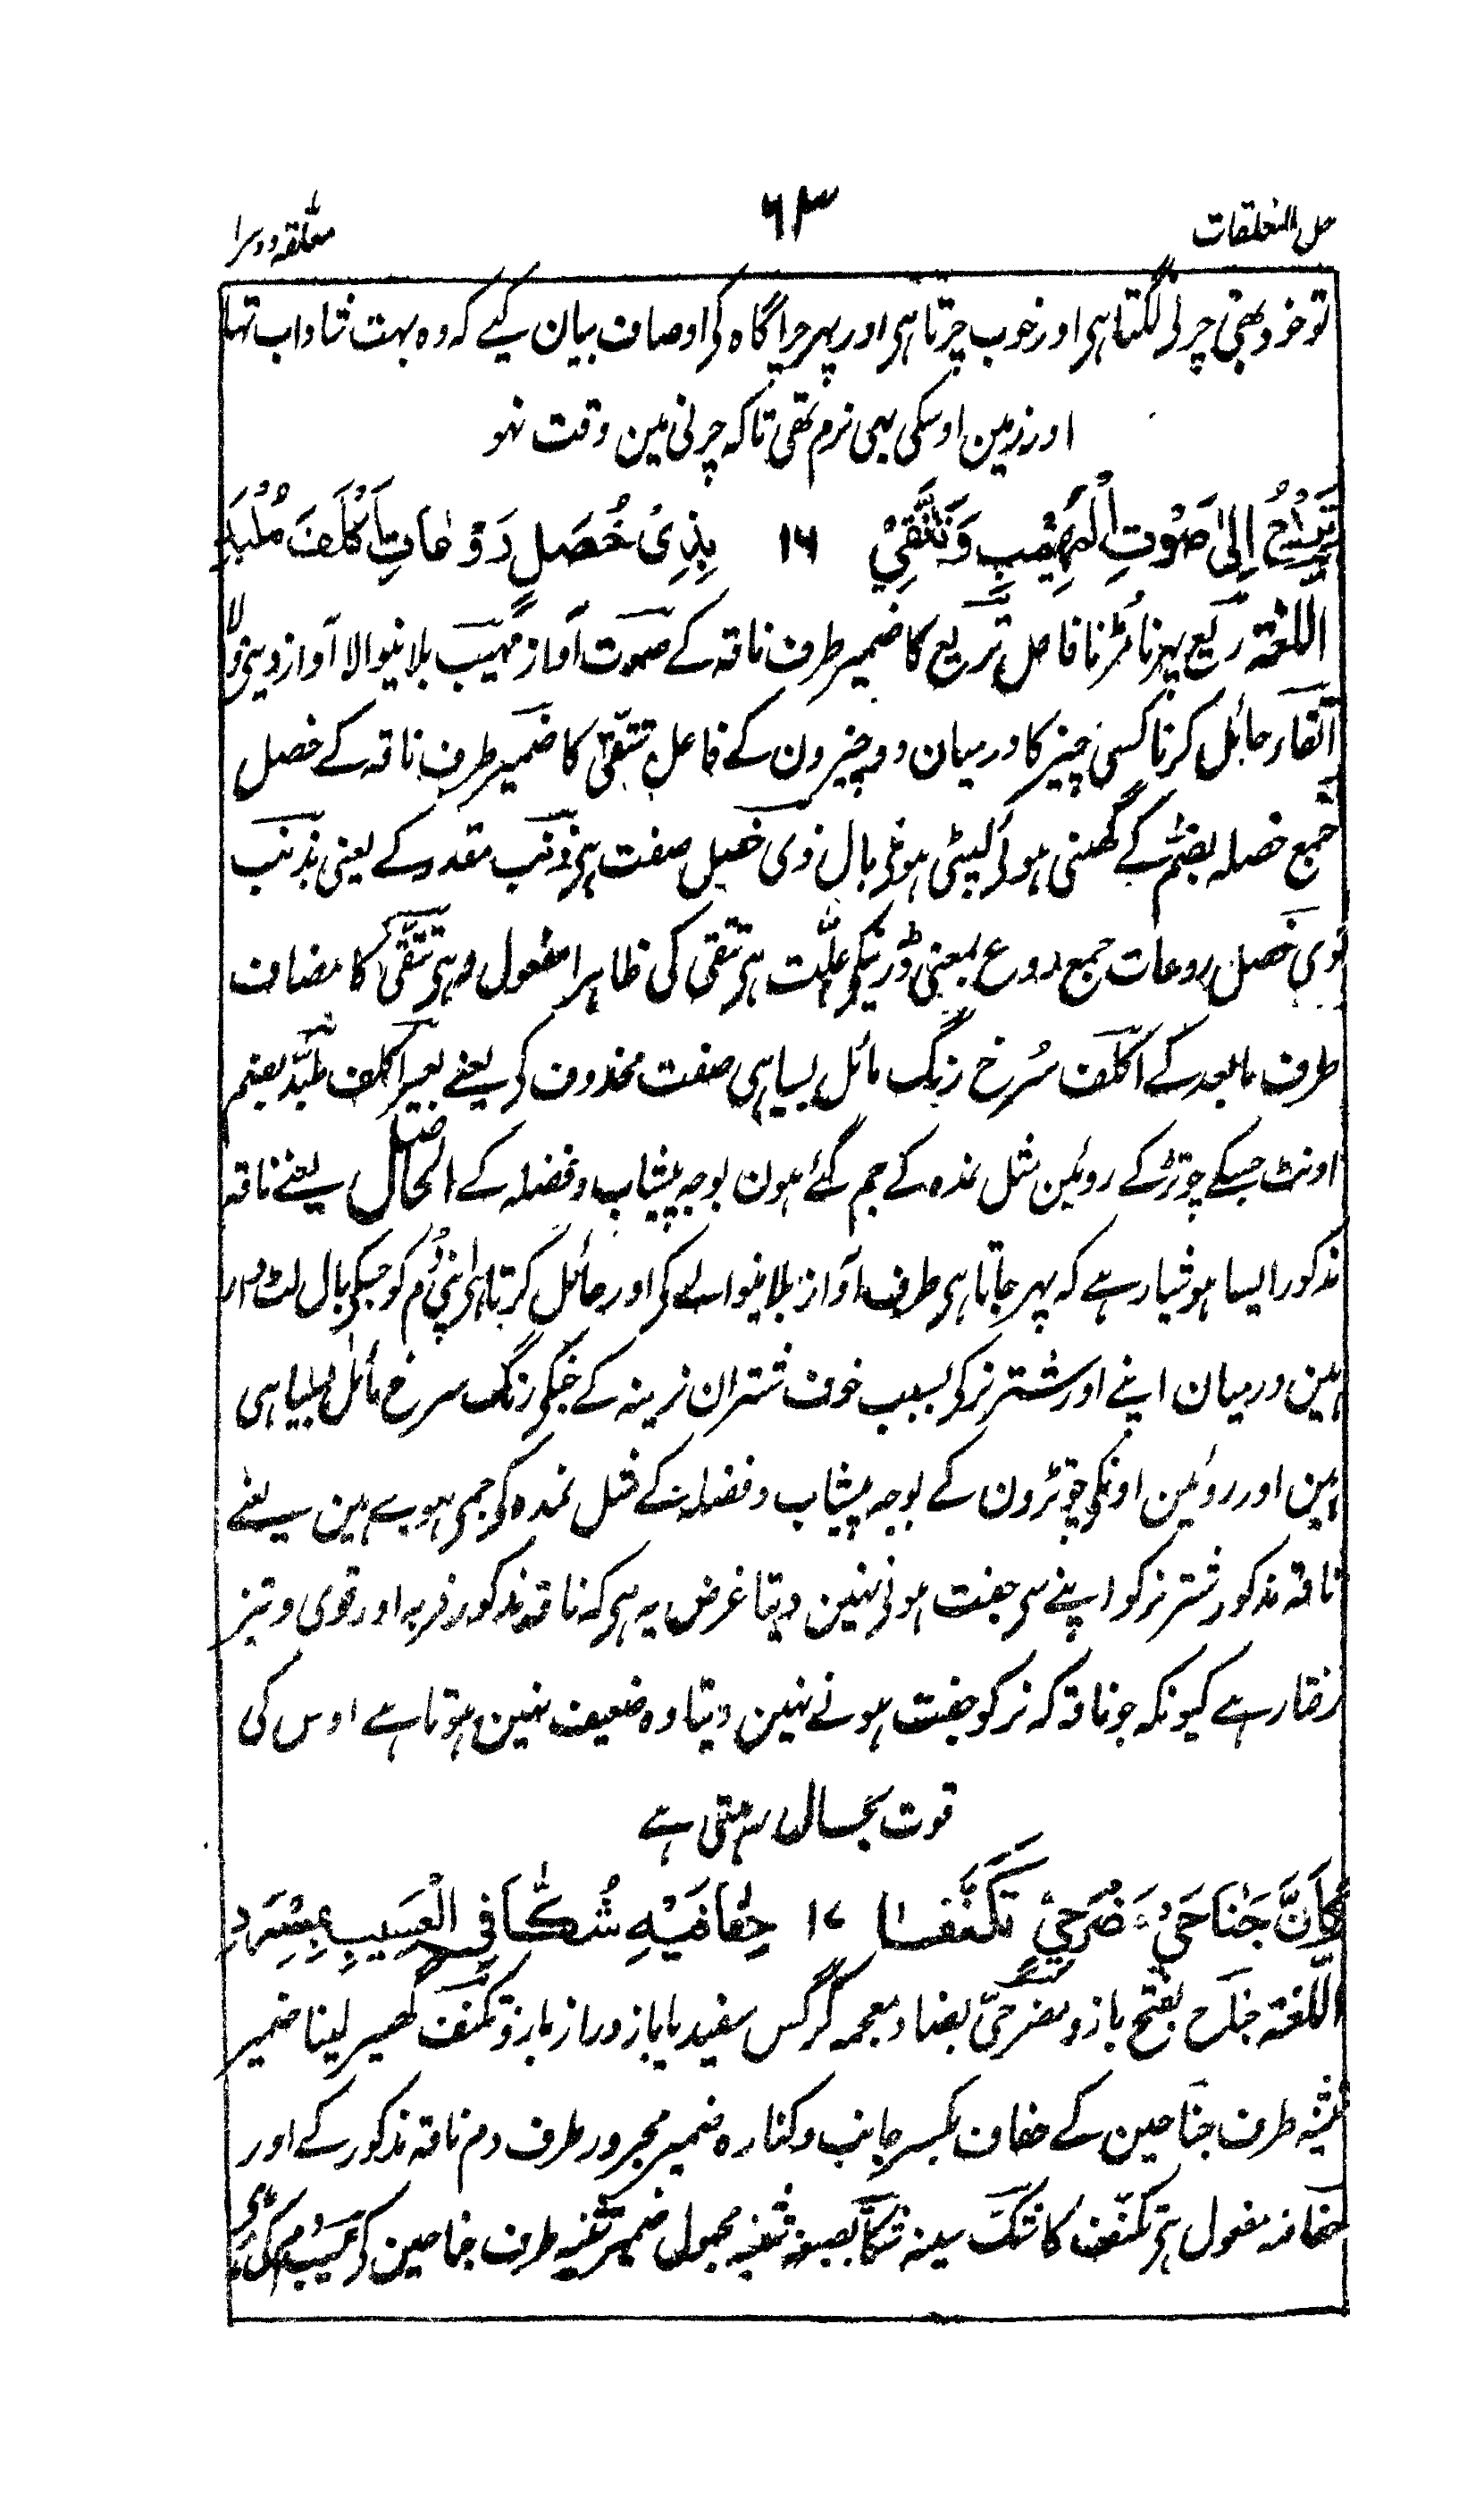 حل المعلقات
٦٣
معلقہ دوسرا
تو خود بھی چرلی لگتا ہی اور خوب چرتا ہی اور پہر چراگاہ کی اوصاف بیان کیے کہ وہ بہت شاداب تہا
اور زمین اوسکی بھی نرم تھی تاکہ چرنی مین وقت نہو
تَرِيْعُ اِلىٰ صَوْتِ الْمُهِيْبِ وَتَتَّقِيْ ١٦ بِذِىْ خُصَلٍ رَوْعَاتِ اَكْلَفَ مُلْبَدِ
اللغۃ ریع پہرنا مڑنا فاعل تریع کا ضمیر طرف ناقہ کے صوت آواز مہیب بلانیوالا آواز دینی والا
اتقار حائل کرنا کسی چیز کا درمیان دو چیزون کے فاعل تتقی کا ضمیر طرف ناقہ کے خصل
جمع خصلہ بضم کے گھنی ہوئی لپٹی ہوئی بال ذی خصل صفت ہی ذنب مقدر کے یعنی بذنب
ذی خصل روعات جمع روع بمعنی ڈر یکی علت ہی تتقی کی ظاہرا مفعول بہ ہی تتقی کا مضاف
طرف مابعد کے اکلف سُرخ رنگ مائل بسیاہی صفت محذوف کی یعنے بعیر اکلف ملبد بضم
اونٹ جسکے چوتڑ کے روئین مثل نمدہ کے جم گئے ہون بوجہ پیشاب و فضلہ کے الحاصل یعنے ناقہ
مذکور ایسا ہوشیار ہے کہ پہر جاتا ہی طرف آواز بلانیوالے کی اور حائل کرتا ہی اپنی دُم کو جسکی بال لٹ دار
ہین درمیان اپنے اور شتر نر کی بسبب خوف شتران نرینہ کے جنکی رنگ سرخ مائل بسیاہی
ہین اور روئین اونکی چوتڑون کے بوجہ پیشاب و فضلہ کے مثل نمدہ کی جمی ہوے ہین یعنے
ناقہ مذکور شتر نر کو اپنے سی جفت ہونی نہین دیتا غرض یہ ہی کہ ناقہ مذکور فربہ اور قوی و تیز
رفتار ہے کیونکہ جو ناقہ کہ نر کو جفت ہونے نہین دیتا وہ ضعیف نہین ہوتا ہے اوس کی
قوت بحال رہتی ہے
كَاَنَّ جَنَاحَىْ مَضْرَحِيٍّ تَكَنَّفَا ١٧ حِفَافَيْهِ شُكَّا فِي الْعَسِيْبِ بِمِسْرَدِ
اللغۃ جناح بفتح بازو مضرحیّ بضاد معجمہ گرگس سفید یا باز دراز بازو تکنف گھیر لینا ضمیر
تثنیہ طرف جناحین کے حفاف بکسر جانب و کنارہ ضمیر مجرور طرف دم ناقہ مذکور کے اور
حفافہ مفعول ہی تکنف کا شک سینہ شکّا بصیغہ تثنیہ مجہول ضمیر تثنیہ طرف جناحین کی عسیب دم کی